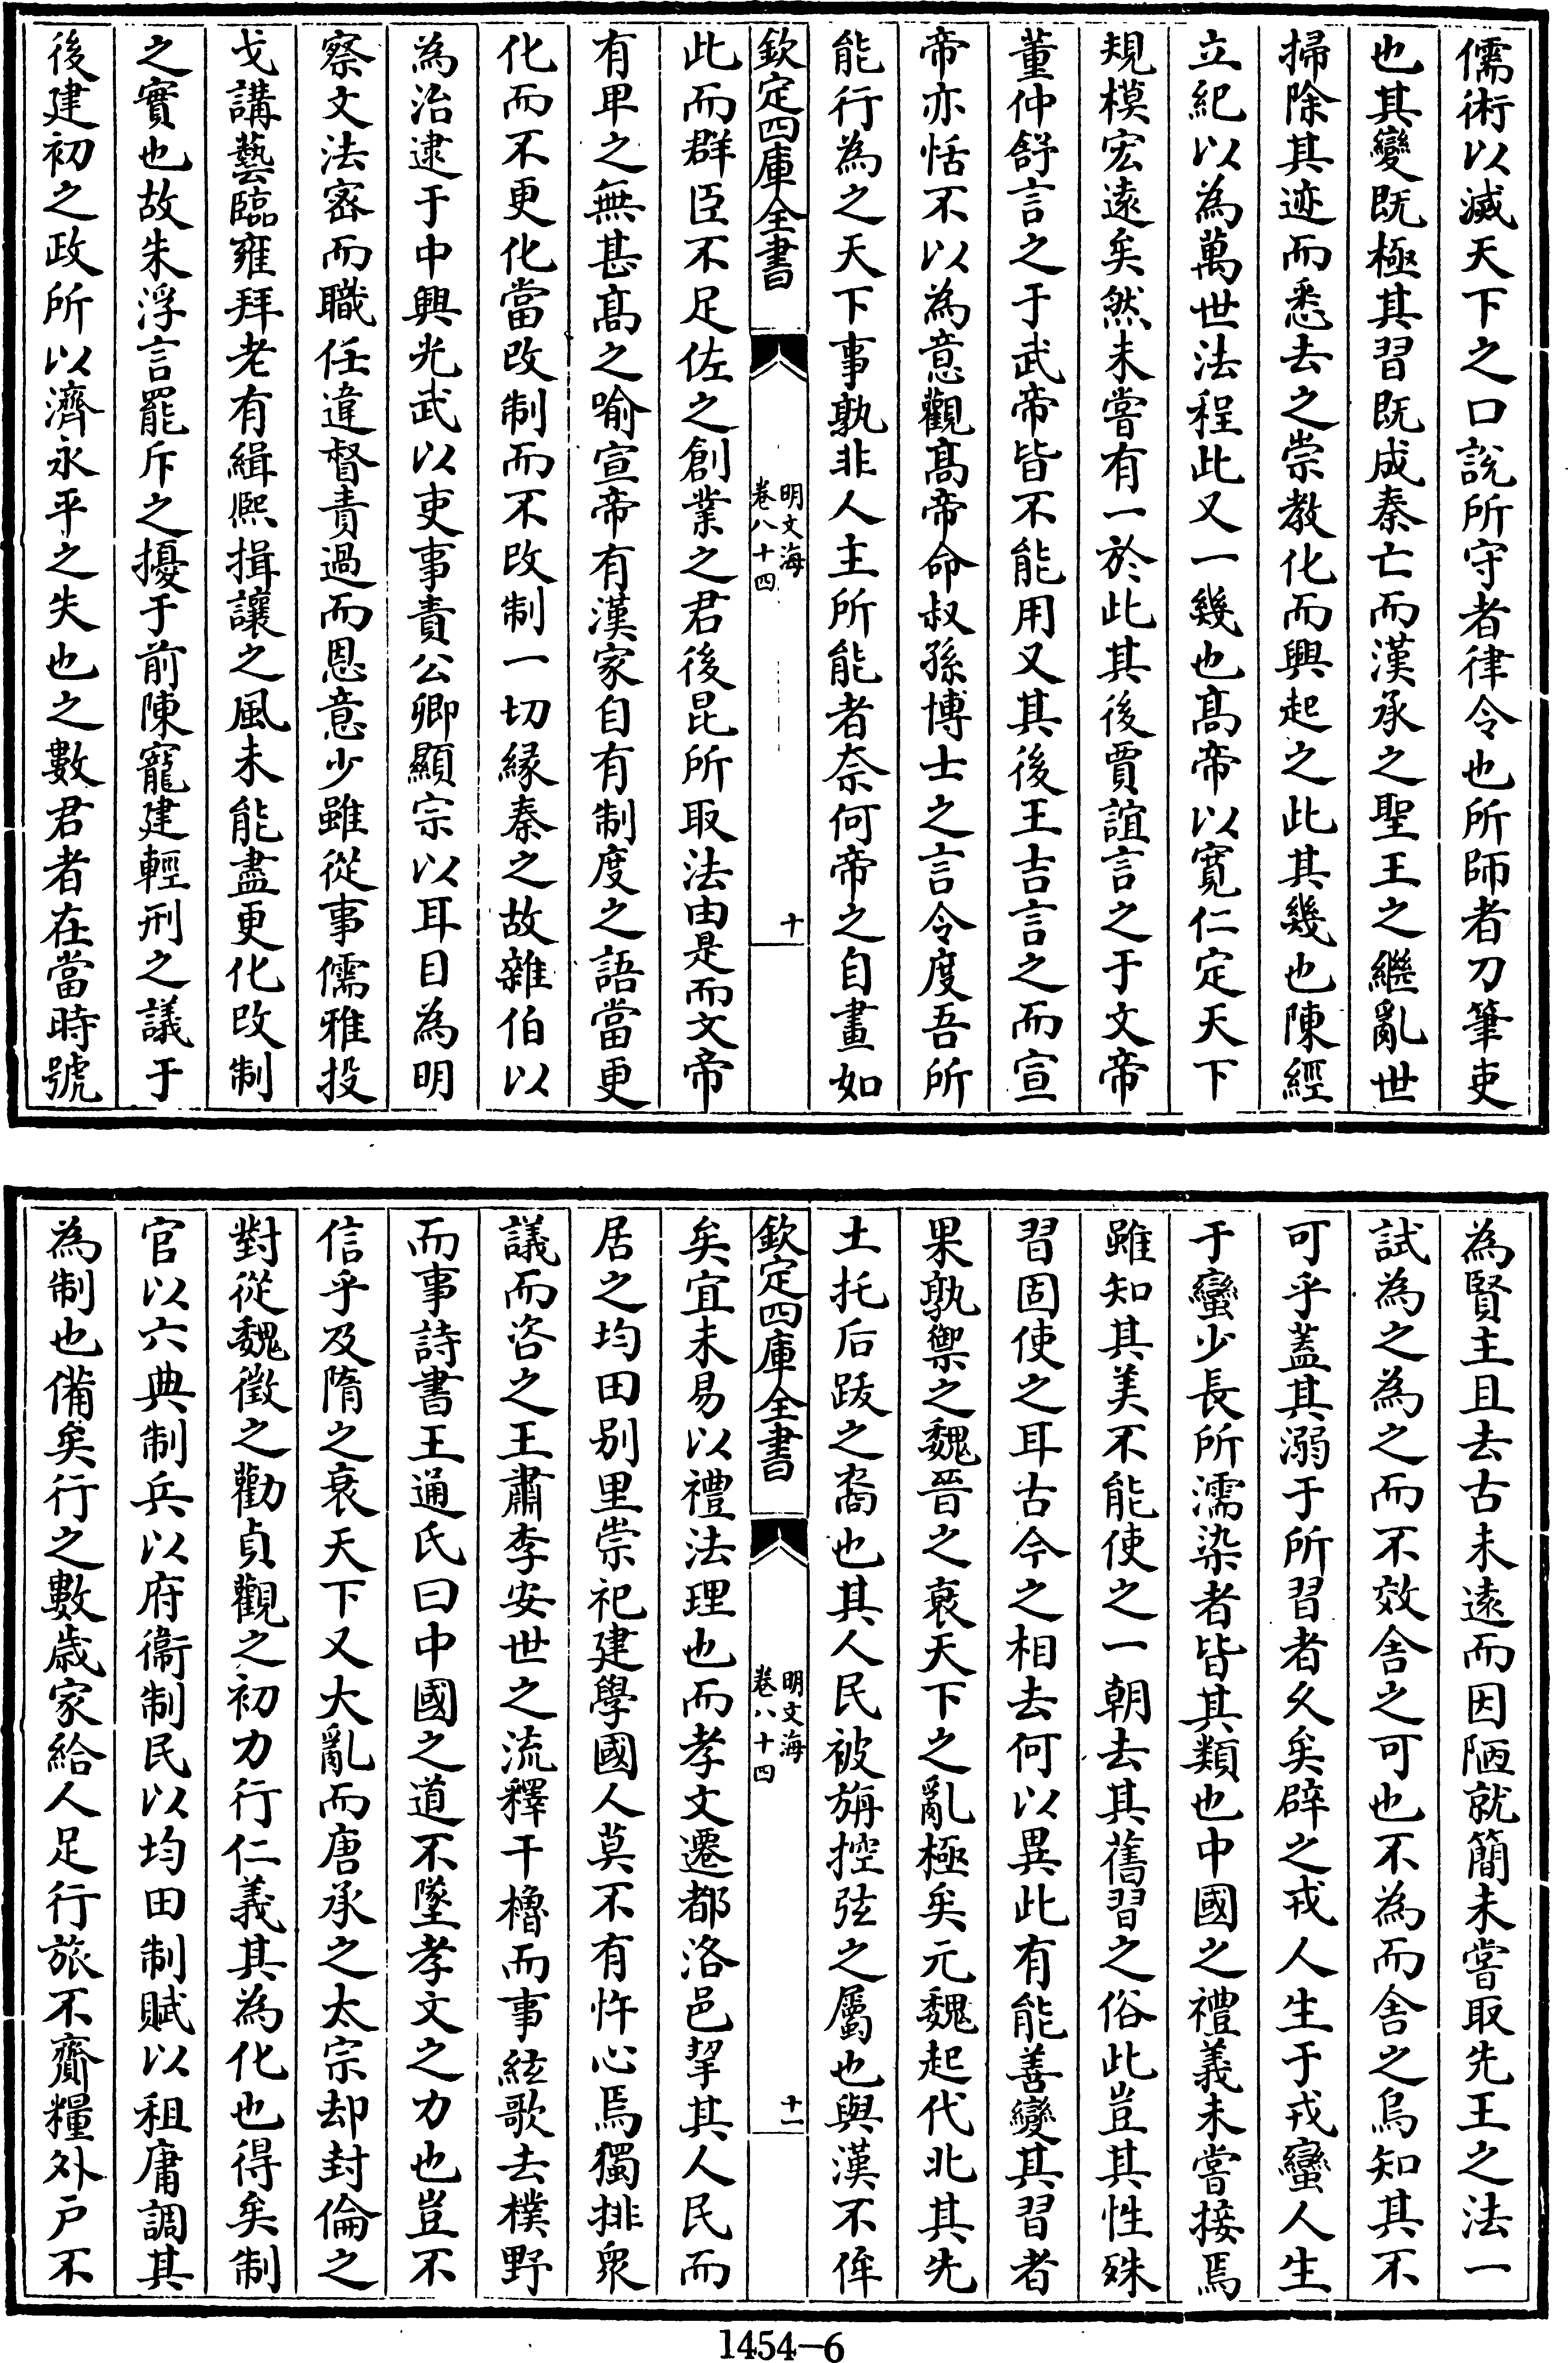 儒術以滅天下之口說所守者律令也所師者刀筆吏
也其變既極其習既成秦亡而漢承之聖王之繼亂世
掃除其迹而悉去之崇教化而興起之此其幾也陳經
立紀以為萬世法程此又一幾也髙帝以寛仁定天下
規模宏逺矣然未嘗有一於此其後賈誼言之于文帝
董仲舒言之于武帝皆不能用又其後王吉言之而宣
帝亦恬不以為意觀髙帝命叔孫博士之言令度吾所
能行為之天下事孰非人主所能者奈何帝之自畫如
欽定四庫全書
明文海
卷八十四
十
此而群臣不足佐之創業之君後昆所取法由是而文帝
有卑之無甚髙之喻宣帝有漢家自有制度之語當更
化而不更化當改制而不改制一切縁秦之故雜伯以
為治逮于中興光武以吏事責公卿顯宗以耳目為明
察文法宻而職任違督責過而恩意少雖從事儒雅投
戈講藝臨雍拜老有緝熈揖讓之風未能盡更化改制
之實也故朱浮言罷斥之擾于前陳寵建輕刑之議于
後建初之政所以濟永平之失也之數君者在當時號
為賢主且去古未逺而因陋就簡未嘗取先王之法一
試為之為之而不效舍之可也不為而舍之烏知其不
可乎蓋其溺于所習者久矣辟之戎人生于戎蠻人生
于蠻少長所濡染者皆其類也中國之禮義未嘗接焉
雖知其美不能使之一朝去其舊習之俗此豈其性殊
習固使之耳古今之相去何以異此有能善變其習者
果孰禦之魏晉之衰天下之亂極矣元魏起代北其先
土托后跋之裔也其人民被旃控弦之屬也與漢不侔
欽定四庫全書
明文海
卷八十四
十一
矣宜未易以禮法理也而孝文遷都洛邑挈其人民而
居之均田别里崇祀建學國人莫不有忤心焉獨排衆
議而咨之王肅李安世之流釋干櫓而事絃歌去樸野
而事詩書王通氏曰中國之道不墜孝文之力也豈不
信乎及隋之衰天下又大亂而唐承之太宗却封倫之
對從魏徵之勸貞觀之初力行仁義其為化也得矣制
官以六典制兵以府衞制民以均田制賦以租庸調其
為制也備矣行之數歳家給人足行旅不齎糧外户不
1454-6